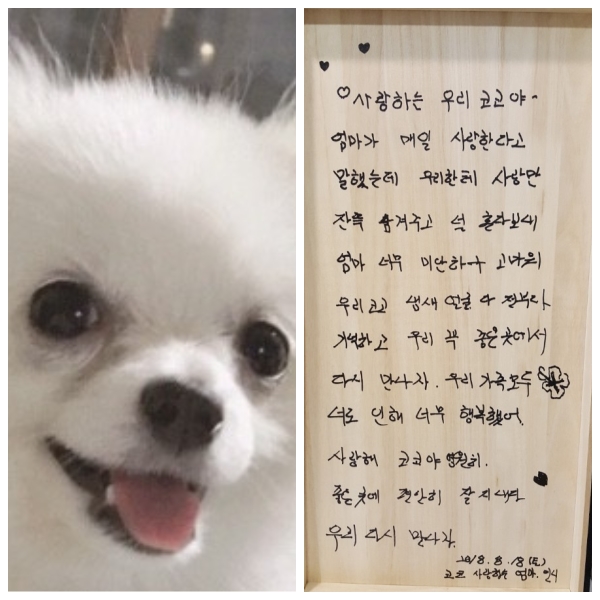 ♡사랑하는 우리 코코야~
엄마가 매일 사랑한다고
말했는데 우리한테 사랑만
잔뜩 남겨주고 널 혼자보내
엄마 너무 미안하구 고마워
우리코코 생새 얼굴 다 전부다
기억하고 우리 꼭 좋은곳에서
다시 만나자. 우리가족모두
너로 인해 너무 행복했어.
사랑해 코코야 영원히.
좋은곳에 편안히 잘지내다
우리 다시 만나자.
2018.8.18(토)
코코 사랑하는 엄마.